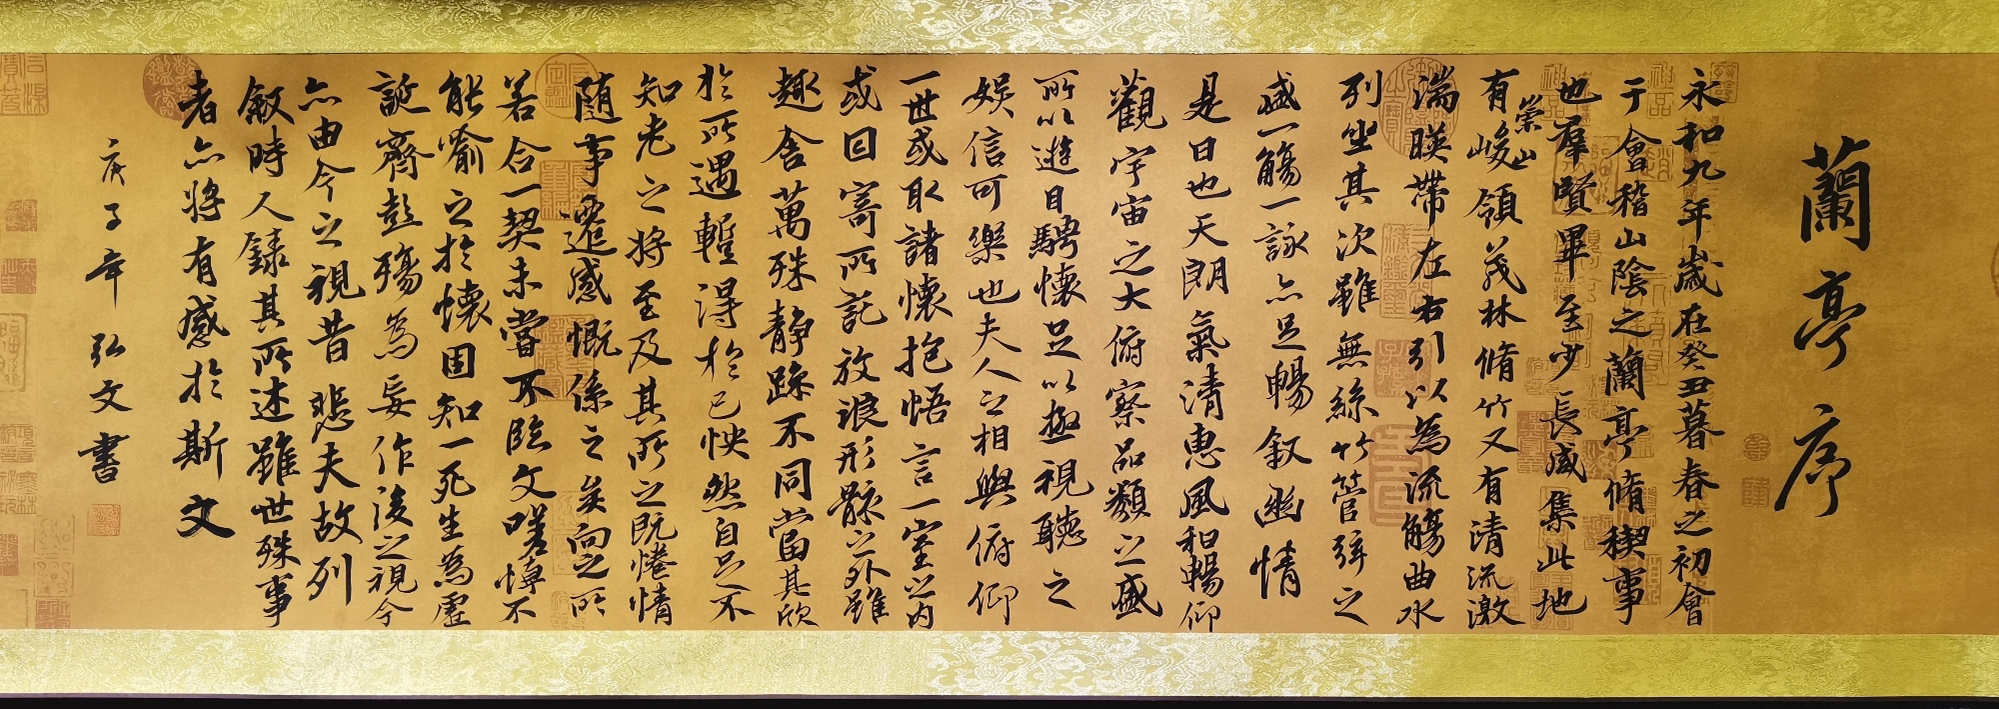 蘭亭序
永和九年歲在癸丑暮春之初會
于會稽山陰之蘭亭脩稧事
也羣賢畢至少長咸集此地
有崇山峻領茂林脩竹又有清流激
湍暎帶左右引以為流觴曲水
列坐其次雖無絲竹管弦之
盛一觴一詠亦足暢叙幽情
是日也天朗氣清惠風和暢仰
觀宇宙之大俯察品類之盛
所以遊目騁懷足以極視聽之
娛信可樂也夫人之相與俯仰
一世或取諸懷抱悟言一室之內
或因寄所託放浪形骸之外雖
趣舍萬殊静躁不同當其欣
於所遇暫得於己怏然自足不
知老之將至及其所之既惓情
随事遷感慨係之矣向之所
若合一契未嘗不臨文嗟悼不
能喻之於懷固知一死生為虛
誕齊彭殤為妄作後之視今
亦由今之視昔悲夫故列
叙時人錄其所述雖世殊事
者亦將有感於斯文
庚子年弘文書